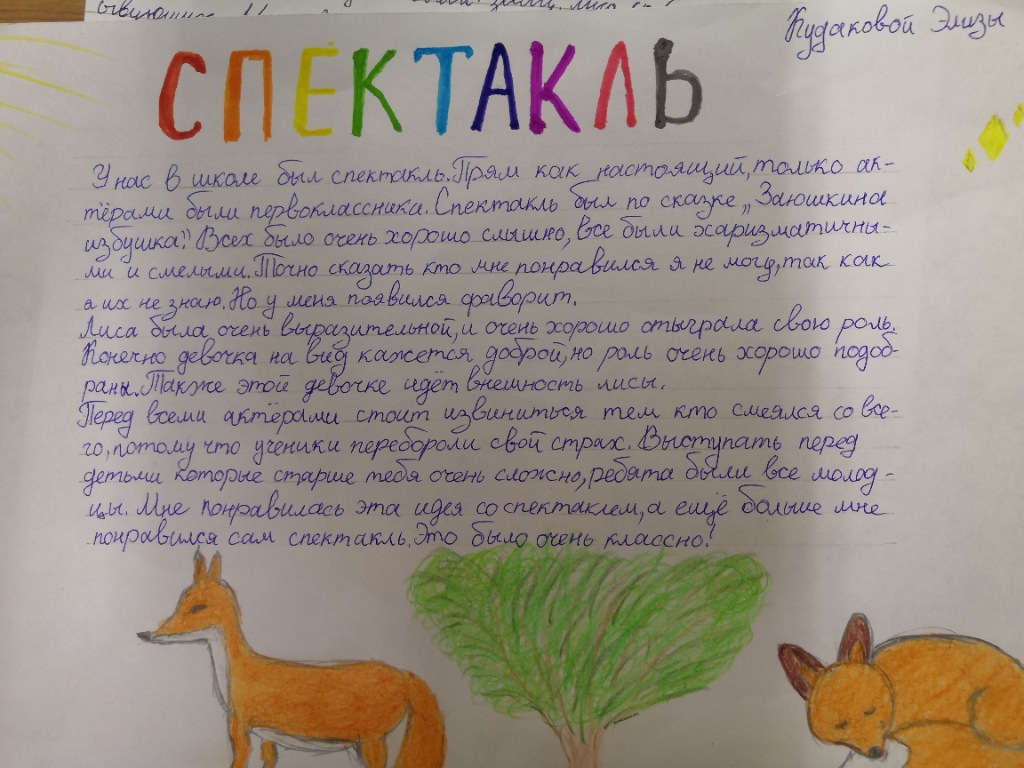 Кудаковой Элизы
СПЕКТАКЛЬ
У нас в школе был спектакль. Прям как настоящий, только ак-
тёрами были первоклассника. Спектакль был по сказке „Заюшкина
избушка." Всех было очень хорошо слышно, все были харизматичны-
ми и смелыми. Точно сказать кто мне понравился я не могу, так как
а их не знаю. Но у меня паявился фаворит.
Лиса была очень выразительной, и очень хорошо отыграла свою роль.
Конечно девочка на вид кажется доброй, но роль очень хорошо подоб-
рана. Также этой девочке идёт внешность лисы.
Перед всеми актёрами стоит извиниться тем кто смеялся со все-
го, потому что ученики перебороли свой страх. Выступать перед
детьми которые старше тебя очень сложно, ребята были все молод-
цы. Мне понравилась эта идея со спектаклем, а ещё больше мне
понравился сам спектакль. Это было очень классно!